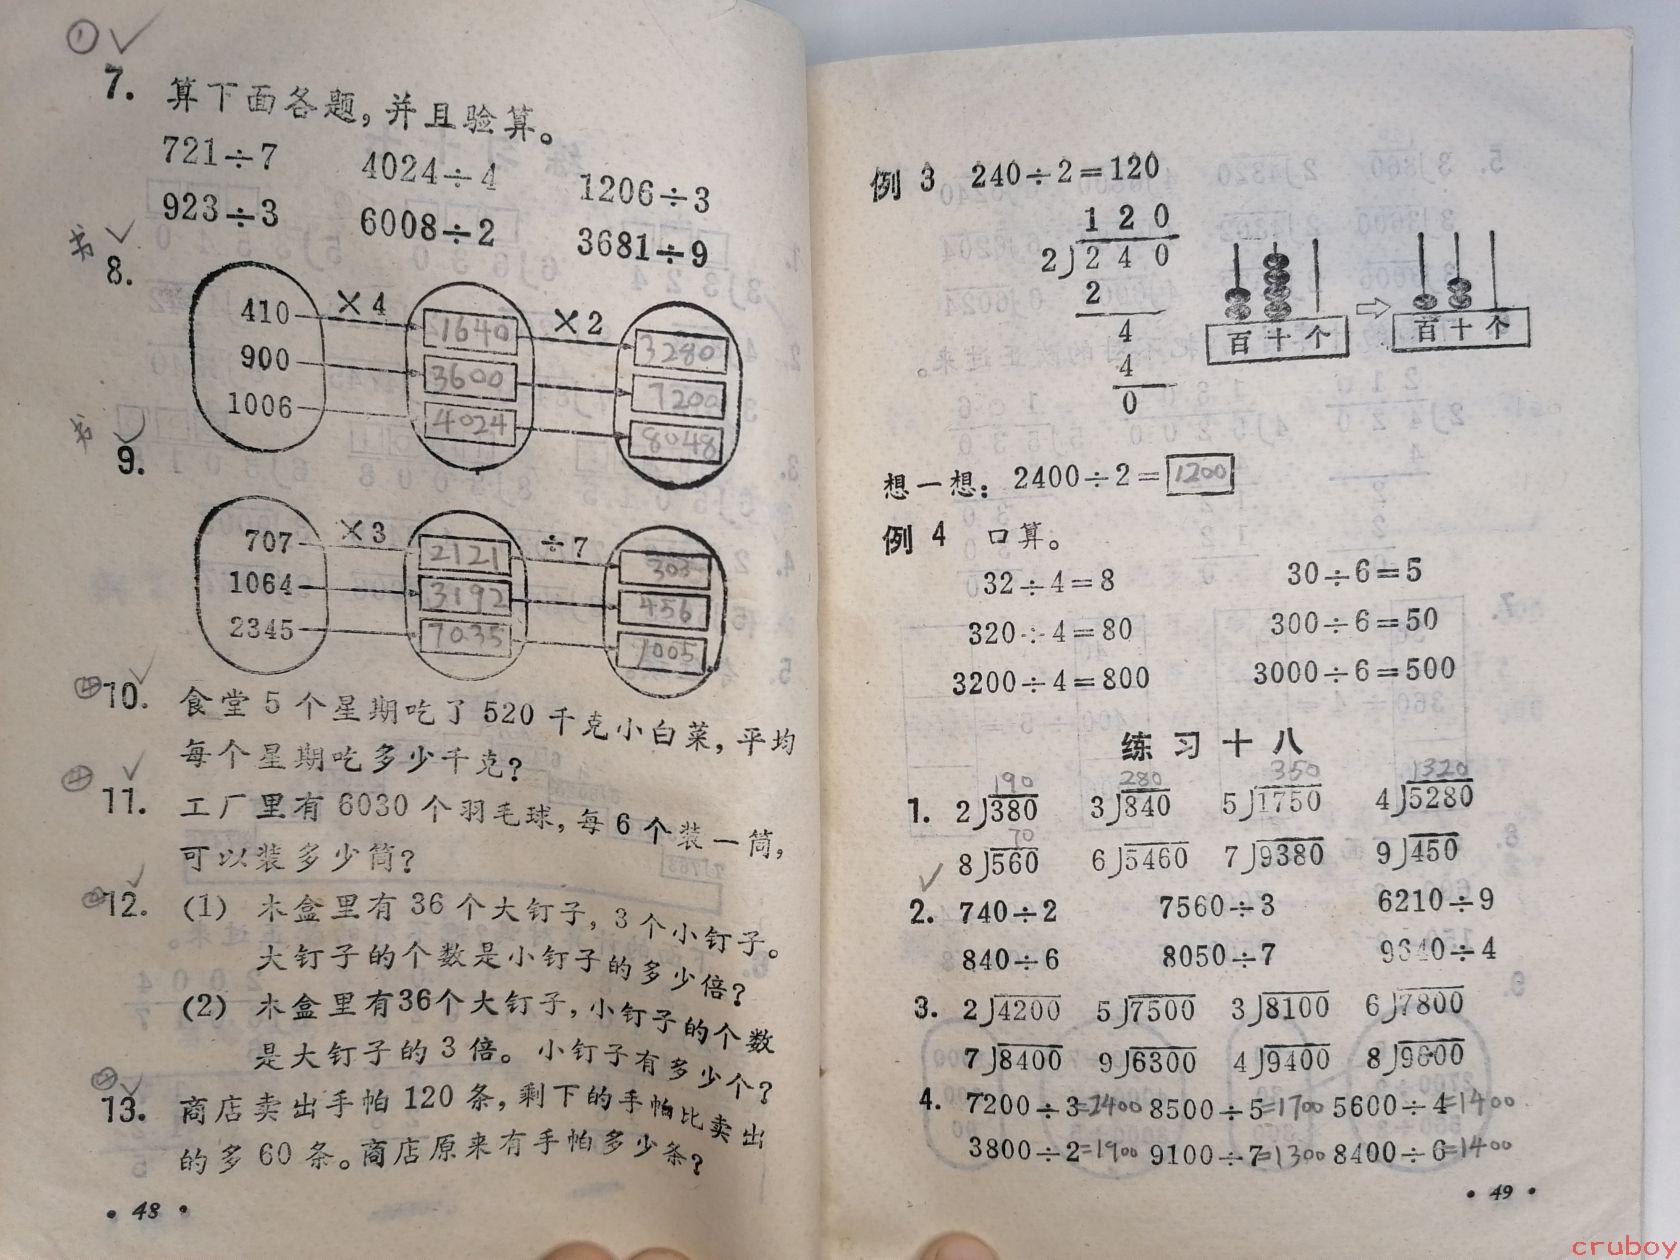 ① ✓
7. 算下面各题，并且验算。
721÷7 4024÷4 1206÷3
923÷3 6008÷2 3681÷9
书 ✓
8.
×4 ×2
410 1640 3280
900 3600 7200
1006 4024 8048
书
9.
×3 ÷7
707 2121 303
1064 3192 456
2345 7035 1005
10. 食堂5个星期吃了520千克小白菜，平均
每个星期吃多少千克？
11. 工厂里有6030个羽毛球，每6个装一筒，
可以装多少筒？
12. (1) 木盒里有36个大钉子，3个小钉子。
大钉子的个数是小钉子的多少倍？
(2) 木盒里有36个大钉子，小钉子的个数
是大钉子的3倍。小钉子有多少个？
13. 商店卖出手帕120条，剩下的手帕比卖出
的多60条。商店原来有手帕多少条？
·48·
例3 240÷2=120
120
2)240
2
4
4
0
百十个 ⇨ 百十个
想一想：2400÷2=1200
例4 口算。
32÷4=8 30÷6=5
320÷4=80 300÷6=50
3200÷4=800 3000÷6=500
练习十八
190 280 350 1320
1. 2)380 3)840 5)1750 4)5280
70
8)560 6)5460 7)9380 9)450
2. 740÷2 7560÷3 6210÷9
840÷6 8050÷7 9340÷4
3. 2)4200 5)7500 3)8100 6)7800
7)8400 9)6300 4)9400 8)9600
4. 7200÷3=2400 8500÷5=1700 5600÷4=1400
3800÷2=1900 9100÷7=1300 8400÷6=1400
·49·
cruboy